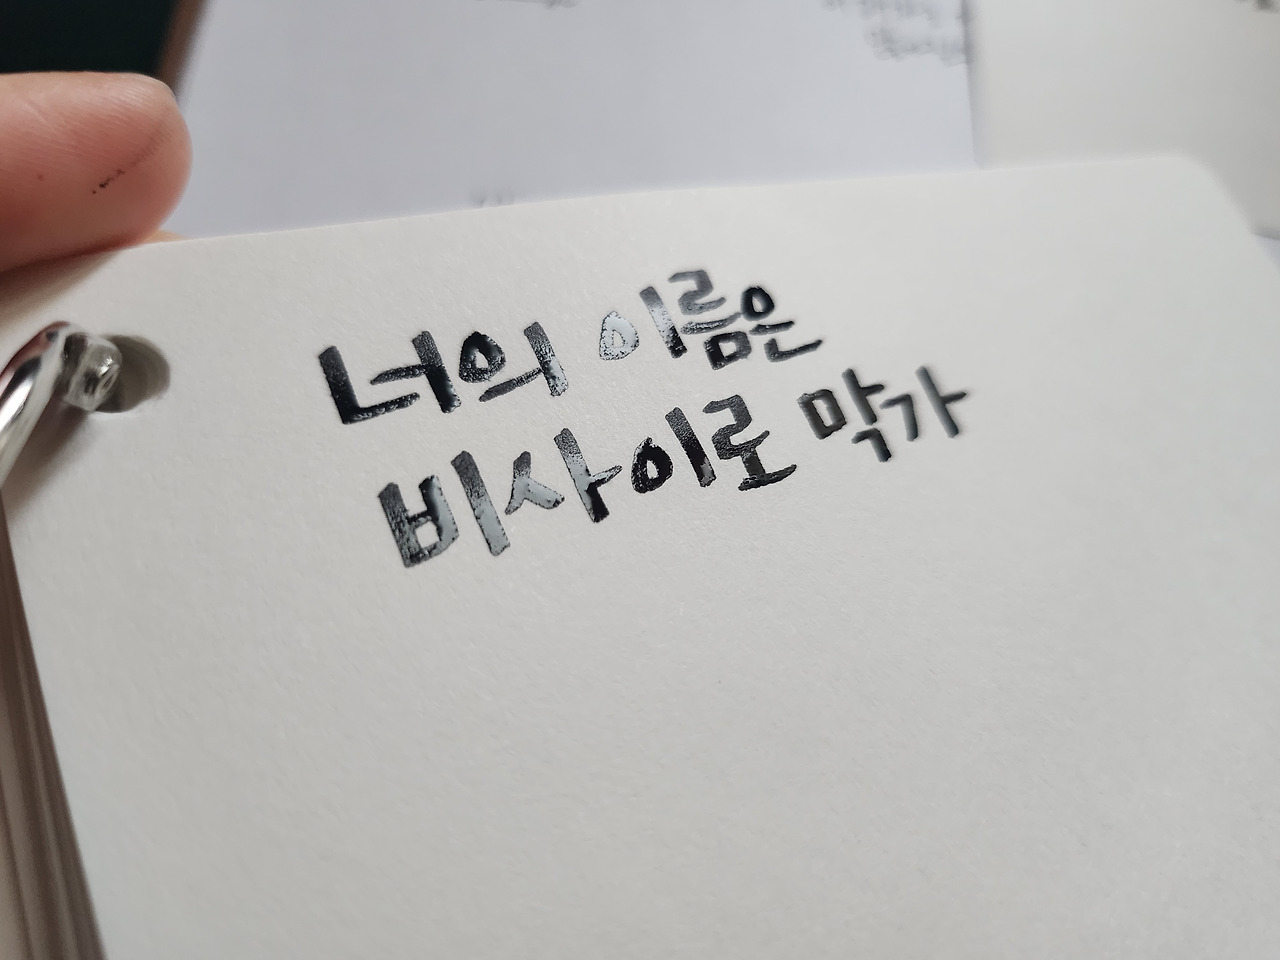 너의 이름은
비사이로 막가